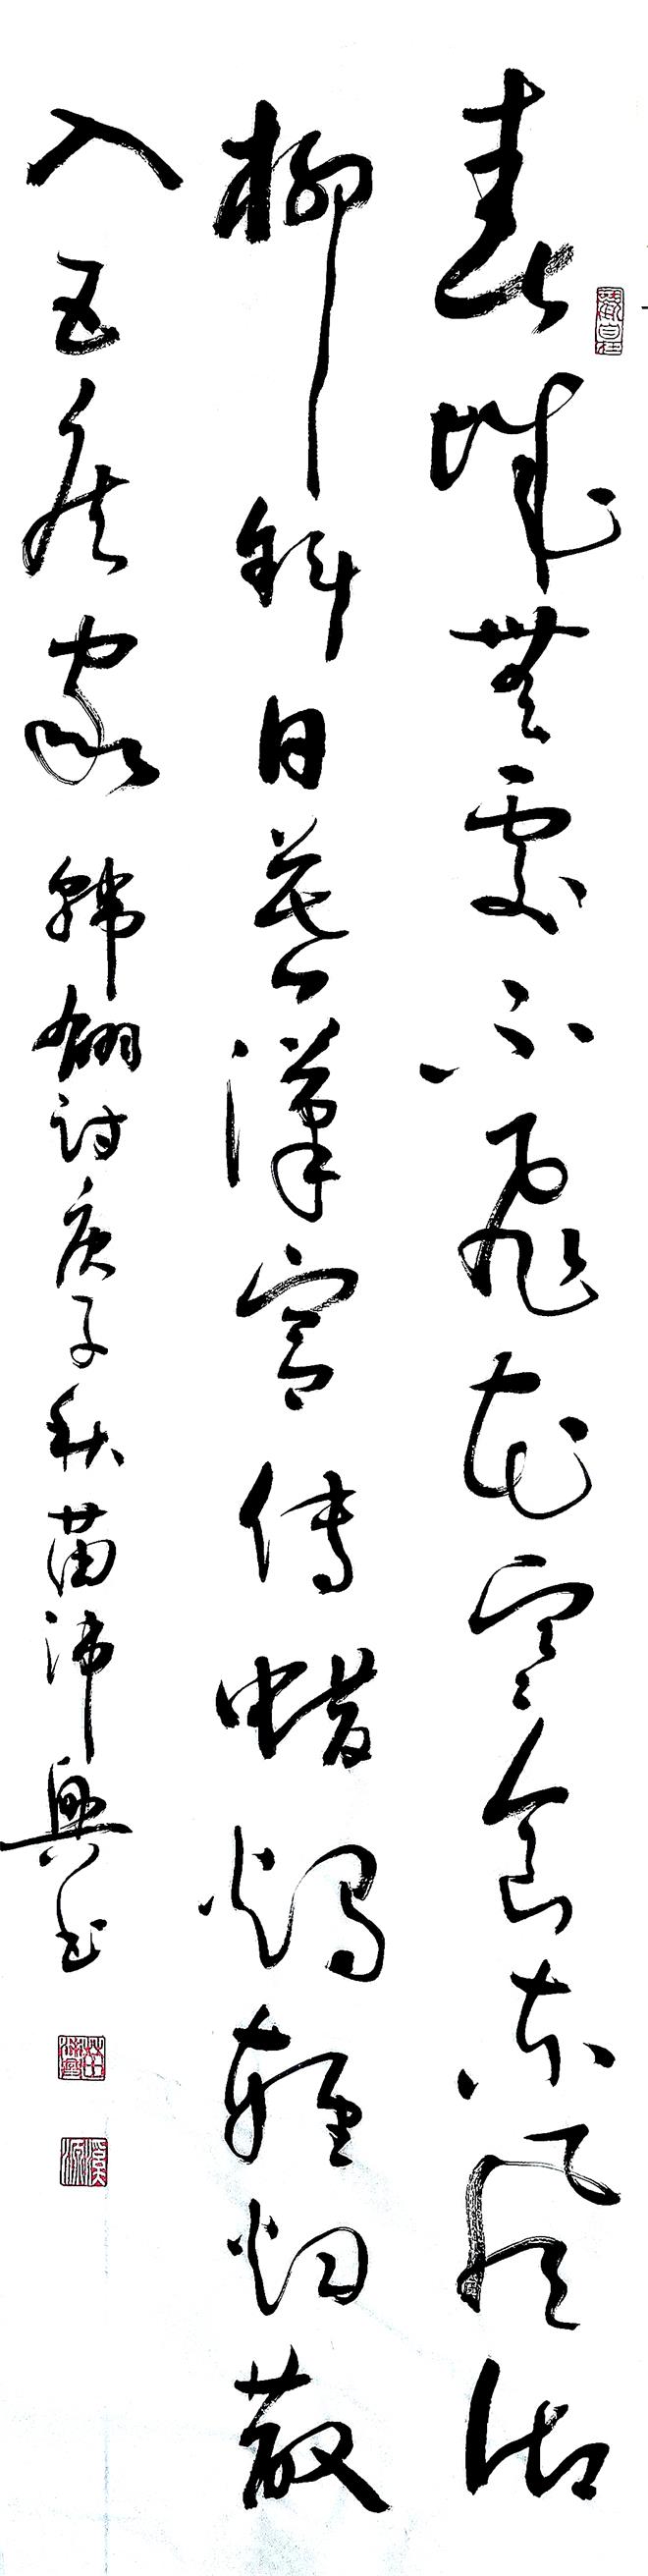 春城無處不飛花寒食東風御
柳斜日暮漢宮傳蜡燭輕烟散
入五侯家 韓翃詩庚子秋苗沛興書